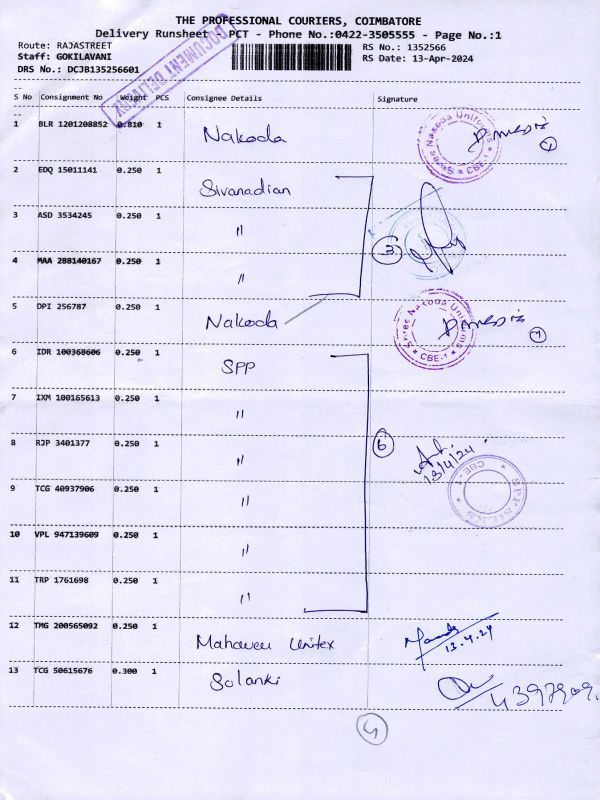 THE PROFESSIONAL COURIERS, COIMBATORE
Delivery Runsheet - PCT - Phone No.:0422-3505555 - Page No.:1
Route: RAJASTREET RS No.: 1352566
Staff: GOKILAVANI RS Date: 13-Apr-2024
DRS No.: DCJB135256601
DOCUMENT DELIVERY
S No Consignment No Weight PCS Consignee Details Signature
1 BLR 1201208852 0.810 1 Nakoda
Shree Nakoda Uniforms * CBE-1 *
2 EDQ 15011141 0.250 1 Sivanadian
3 ASD 3534245 0.250 1 "
3
4 MAA 288140167 0.250 1 "
5 DPI 256787 0.250 1 Nakoda
Shree Nakoda Uniforms * CBE-1 *
6 IDR 100368606 0.250 1 SPP
7 IXM 100165613 0.250 1 "
8 RJP 3401377 0.250 1 "
6
13/4/24
9 TCG 40937906 0.250 1 "
CBE-1
10 VPL 947139609 0.250 1 "
11 TRP 1761698 0.250 1 "
12 TMG 200565092 0.250 1 Mahaveer Unitex
13.4.24
13 TCG 50615676 0.300 1 Solanki